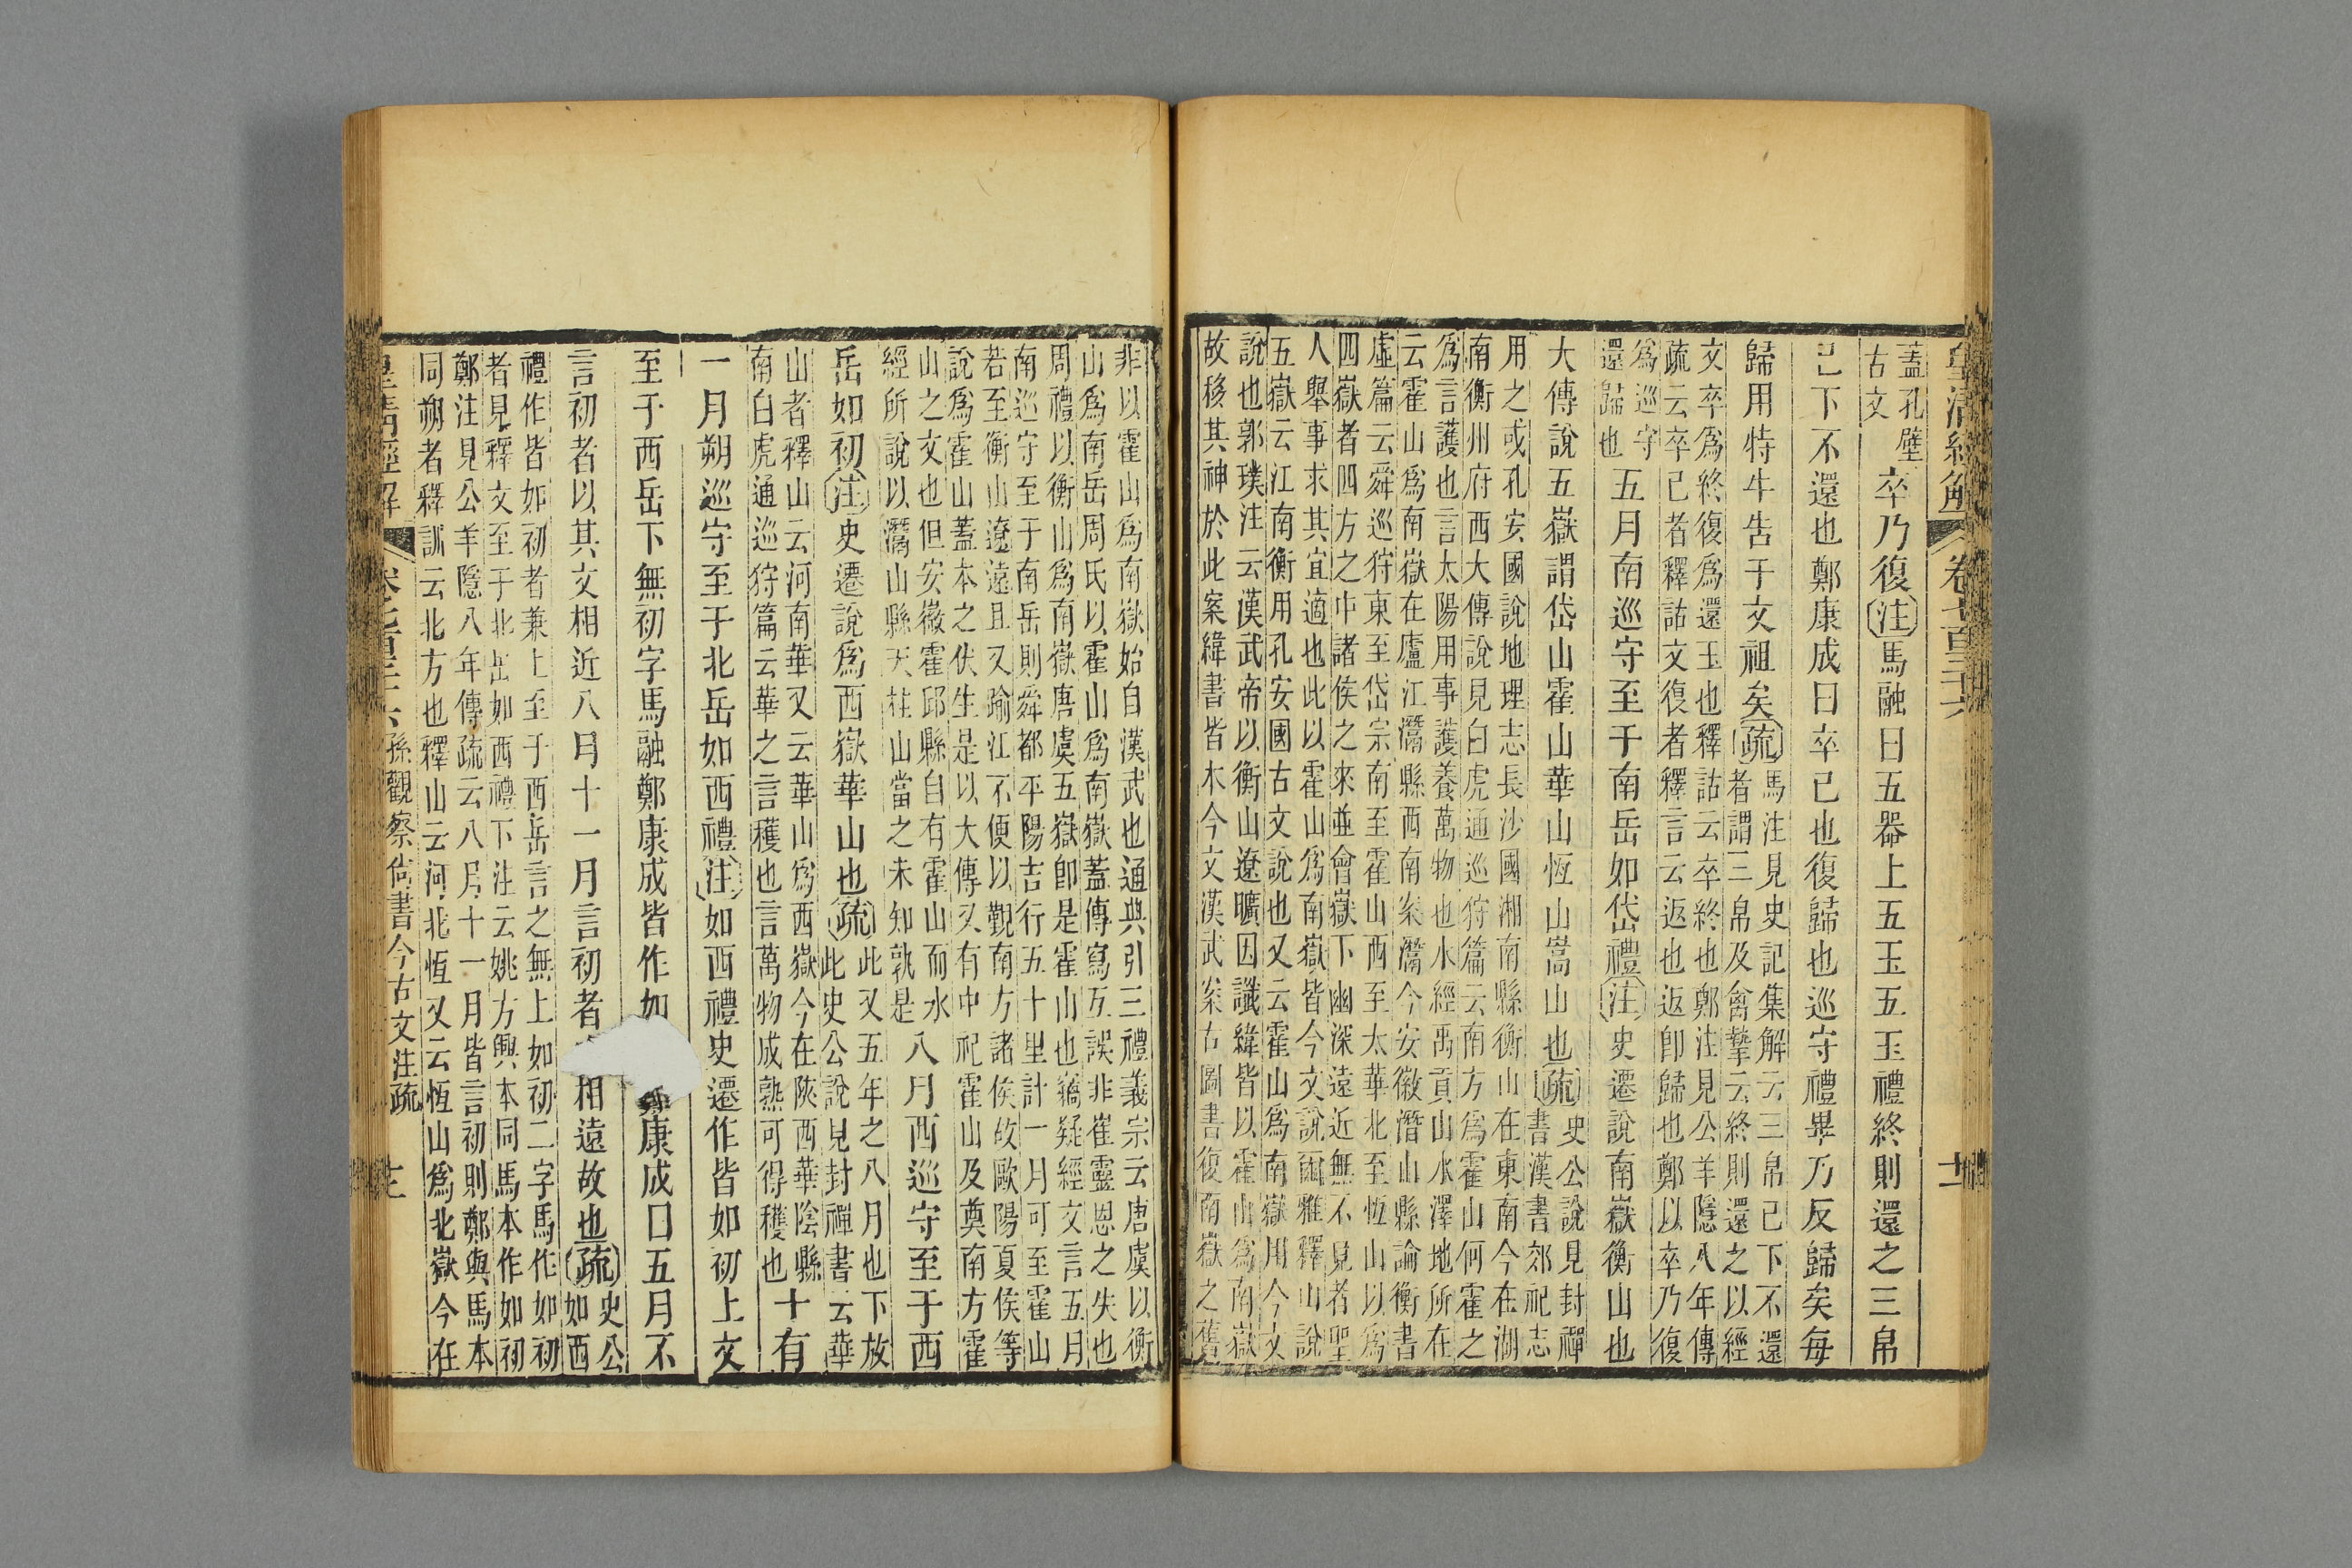 皇清經解 卷七百三十六 十一
蓋孔壁
古文
卒乃復注馬融曰五器上五玉五玉禮終則還之三帛
已下不還也鄭康成曰卒已也復歸也巡守禮畢乃反歸矣每
歸用特牛告于文祖矣疏
馬注見史記集解云三帛已下不還
者謂三帛及禽摯云終則還之以經
文卒為終復為還玉也釋詁云卒終也鄭注見公羊隱八年傳
疏云卒已者釋詁文復者釋言云返也返即歸也鄭以卒乃復
為巡守
還歸也
五月南巡守至于南岳如岱禮注史遷說南嶽衡山也
大傳說五嶽謂岱山霍山華山恆山嵩山也疏
史公說見封禪
書漢書郊祀志
用之或孔安國說地理志長沙國湘南縣衡山在東南今在湖
南衡州府西大傳說見白虎通巡狩篇云南方為霍山何霍之
為言護也言太陽用事護養萬物也水經禹貢山水澤地所在
云霍山為南嶽在廬江灊縣西南案灊今安徽潛山縣論衡書
虛篇云舜巡狩東至岱宗南至霍山西至太華北至恆山以為
四嶽者四方之中諸侯之來並會嶽下幽深遠近無不見者聖
人舉事求其宜適也此以霍山為南嶽皆今文說爾雅釋山說
五嶽云江南衡用孔安國古文說也又云霍山為南嶽用今文
說也郭璞注云漢武帝以衡山遼曠因讖緯皆以霍山為南嶽
故移其神於此案緯書皆本今文漢武案古圖書復南嶽之舊
非以霍山為南嶽始自漢武也通典引三禮義宗云唐虞以衡
山為南岳周氏以霍山為南嶽蓋傳寫互誤非崔靈恩之失也
周禮以衡山為南嶽唐虞五嶽即是霍山也竊疑經文言五月
南巡守至于南岳則舜都平陽吉行五十里計一月可至霍山
若至衡山遼遠且又踰江不便以覲南方諸侯故歐陽夏侯等
說為霍山蓋本之伏生是以大傳又有中祀霍山及奠南方霍
山之文也但安徽霍邱縣自有霍山而水
經所說以灊山縣天柱山當之未知孰是
八月西巡守至于西
岳如初注史遷說為西嶽華山也疏
此又五年之八月也下放
此史公說見封禪書云華
山者釋山云河南華又云華山為西嶽今在陝西華陰縣
南白虎通巡狩篇云華之言穫也言萬物成熟可得穫也
十有
一月朔巡守至于北岳如西禮注如西禮史遷作皆如初上文
至于西岳下無初字馬融鄭康成皆作如 康成曰五月不
言初者以其文相近八月十一月言初者 相遠故也疏
史公
如西
禮作皆如初者兼上至于西岳言之無上如初二字馬作如初
者見釋文至于北岳如西禮下注云姚方興本同馬本作如初
鄭注見公羊隱八年傳疏云八月十一月皆言初則鄭與馬本
同朔者釋訓云北方也釋山云河北恆又云恆山為北嶽今在
皇清經解 卷七百三十六 孫觀察尚書今古文注疏